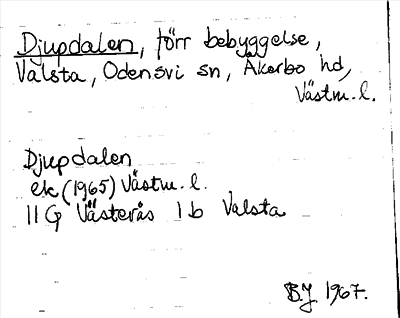 Djupdalen, förr bebyggelse,
Valsta, Odensvi sn, Åkerbo hd,
Västm. l.
Djupdalen
ek (1965) Västm. l.
11 G Västerås 1 b Valsta
B.J. 1967.